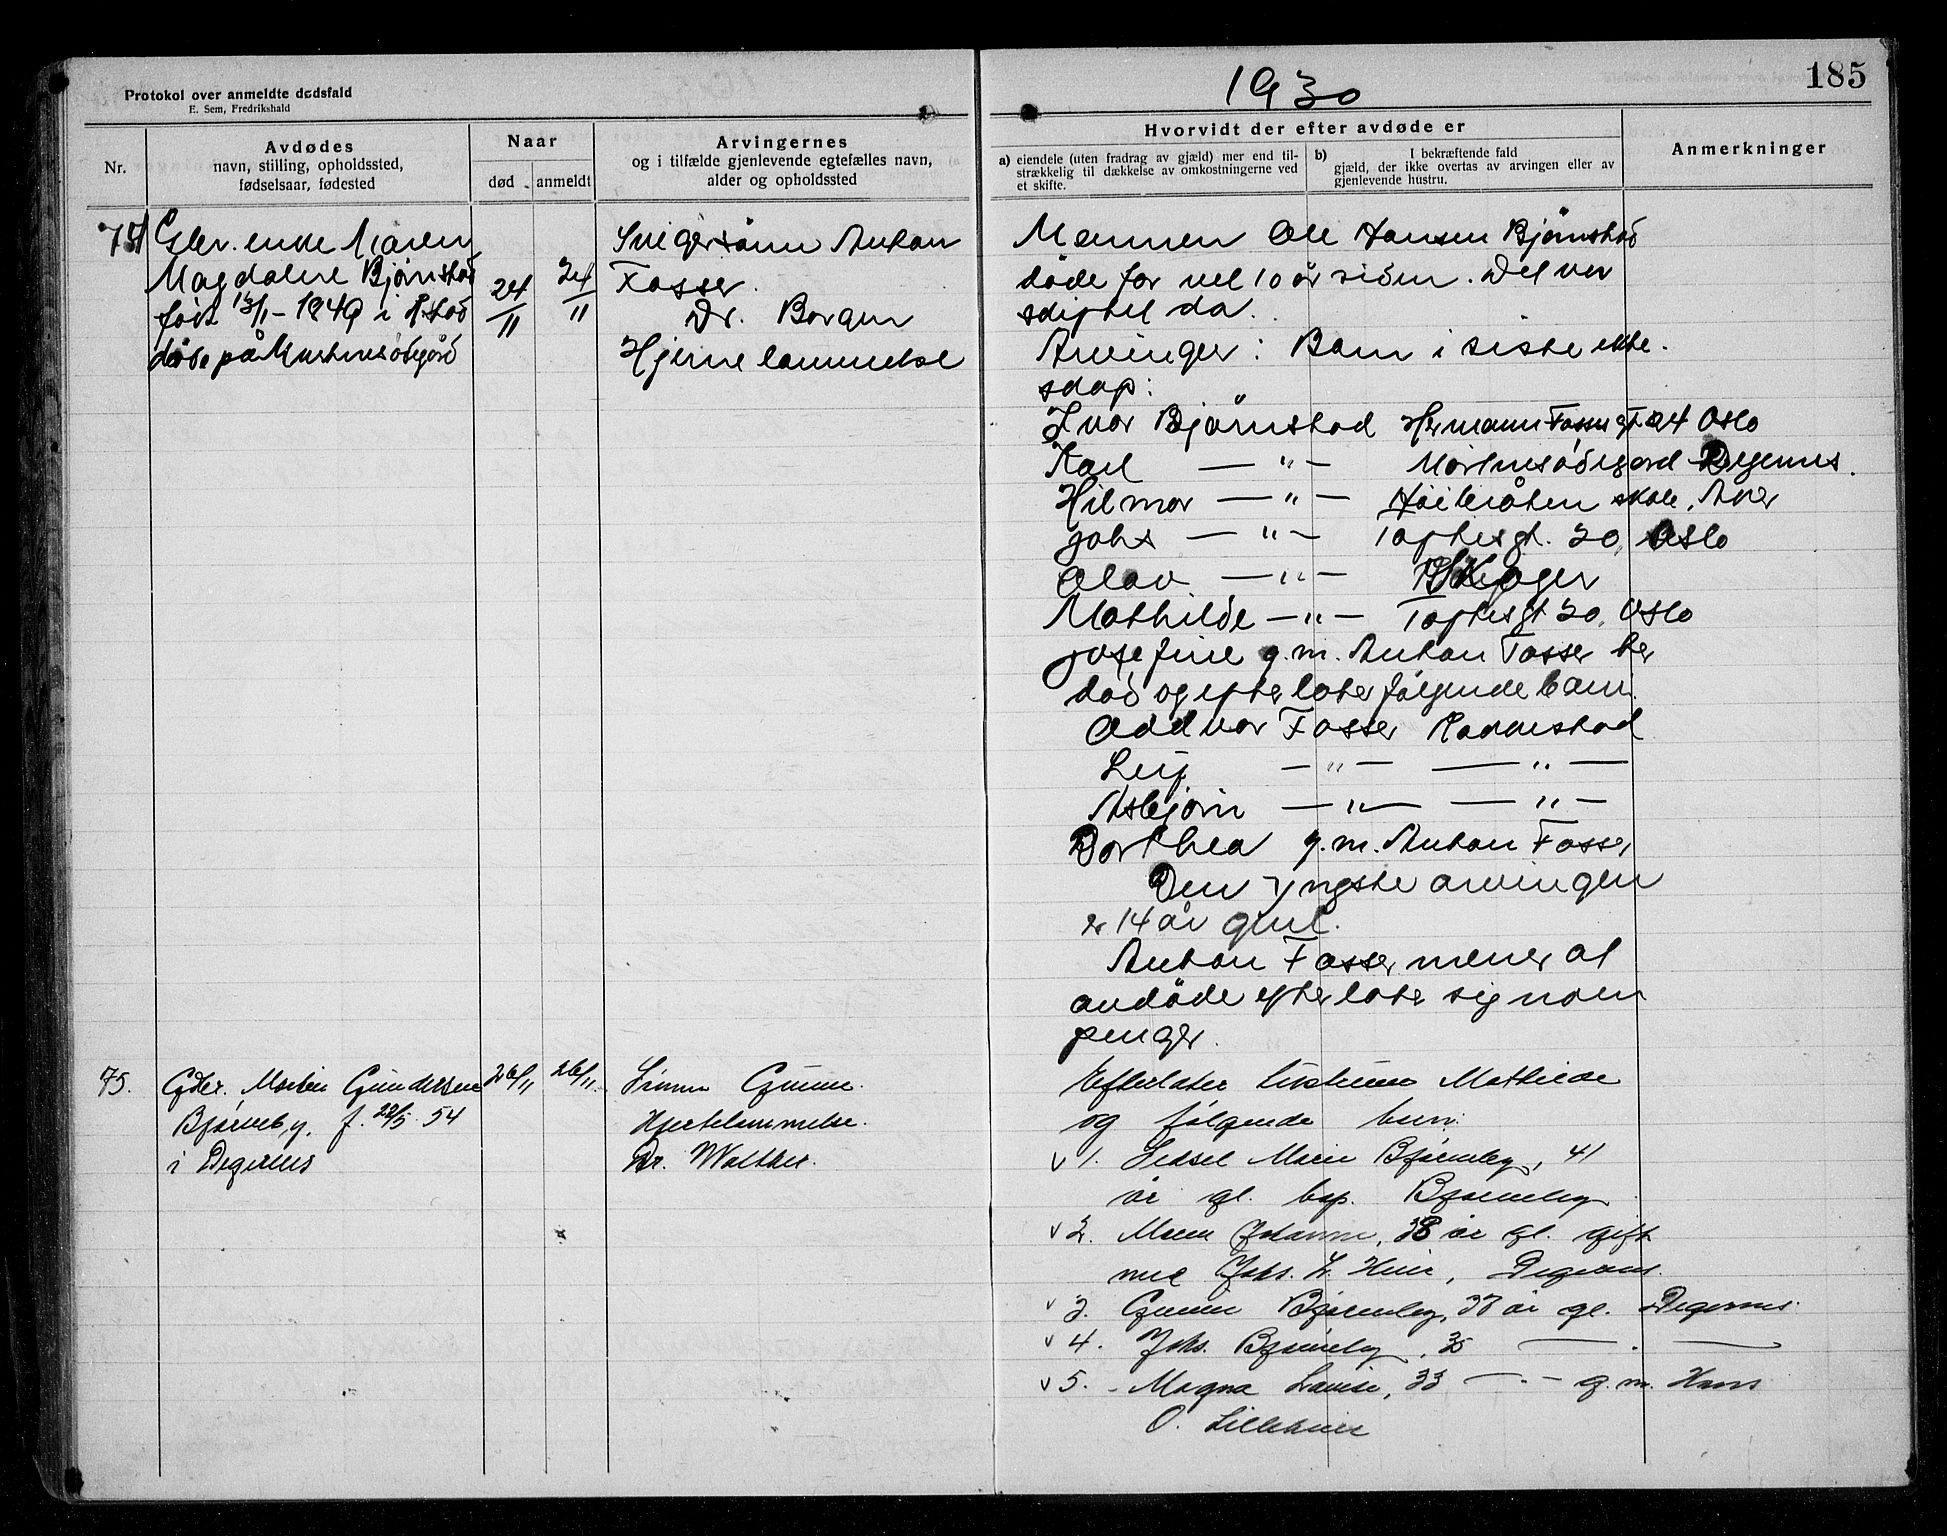 185
1930
Protokol over anmeldte dødsfald
E. Sem, Fredrikshald
Nr.
Avdødes
navn, stilling, opholdssted,
fødselsaar, fødested
Naar
død
anmeldt
Arvingernes
og i tilfælde gjenlevende egtefælles navn,
alder og opholdssted
Hvorvidt der efter avdøde er
a) eiendele (uten fradrag av gjæld) mer end til-
strækkelig til dækkelse av omkostningerne ved
et skifte.
b) I bekræftende fald
gjæld, der ikke overtas av arvingen eller av
gjenlevende hustru.
Anmerkninger
74
enke Maren
Magdalene Bjørnstad
født 1849 i
døde på Mortensødegård
24/11
24/11
Svigersønn Anton
Fosser.
Dr. Borgen
Hjernelammelse
Mannen Ole Hansen Bjørnstad
døde for vel 10 år siden. Det var
skiftet da.
Arvinger: Barn i siste ekte-
skap:
Ivar Bjørnstad Hermann Fossgt 24 Oslo
Karl — " — Mortensødegård Degernes.
Hilmar — " — skole, Aker
Johs — " — Toftesgt. 20, Oslo
Olav — " — Skjøger
Mathilde — " — Toftesgt 20, Oslo
Josefine g.m. Anton Fosser her
død og efterlater følgende barn.
Oddvar Fosser Rakkestad
Leif — " — — " —
Asbjørn — " — — " —
Dorthea g.m. Anton Fosser
Den yngste arvingen
er 14 år gml.
Anton Fosser mener at
avdøde efterlater sig noen
penger.
75.
Gdbr. Martin Gundersen
Bjørneby, f. 22/5 54
i Degernes
26/11
26/11
Sønn Gunnar.
Hjertelammelse.
Dr. Walther.
Efterlater hustruen Mathilde
og følgende barn:
v 1. Sidsel Marie Bjørneby, 41
år gl. bop. Bjørneby
v 2. Maren Johanne, 38 år gl. gift
med Johs. H. Heier, Degernes.
v 3. Gunnar Bjørneby, 37 år gl. Degernes.
v 4. Johs. Bjørneby, 35 — . —
v 5. Magna Lovise, 33 — . — g.m. Hans
O. Lilleheier